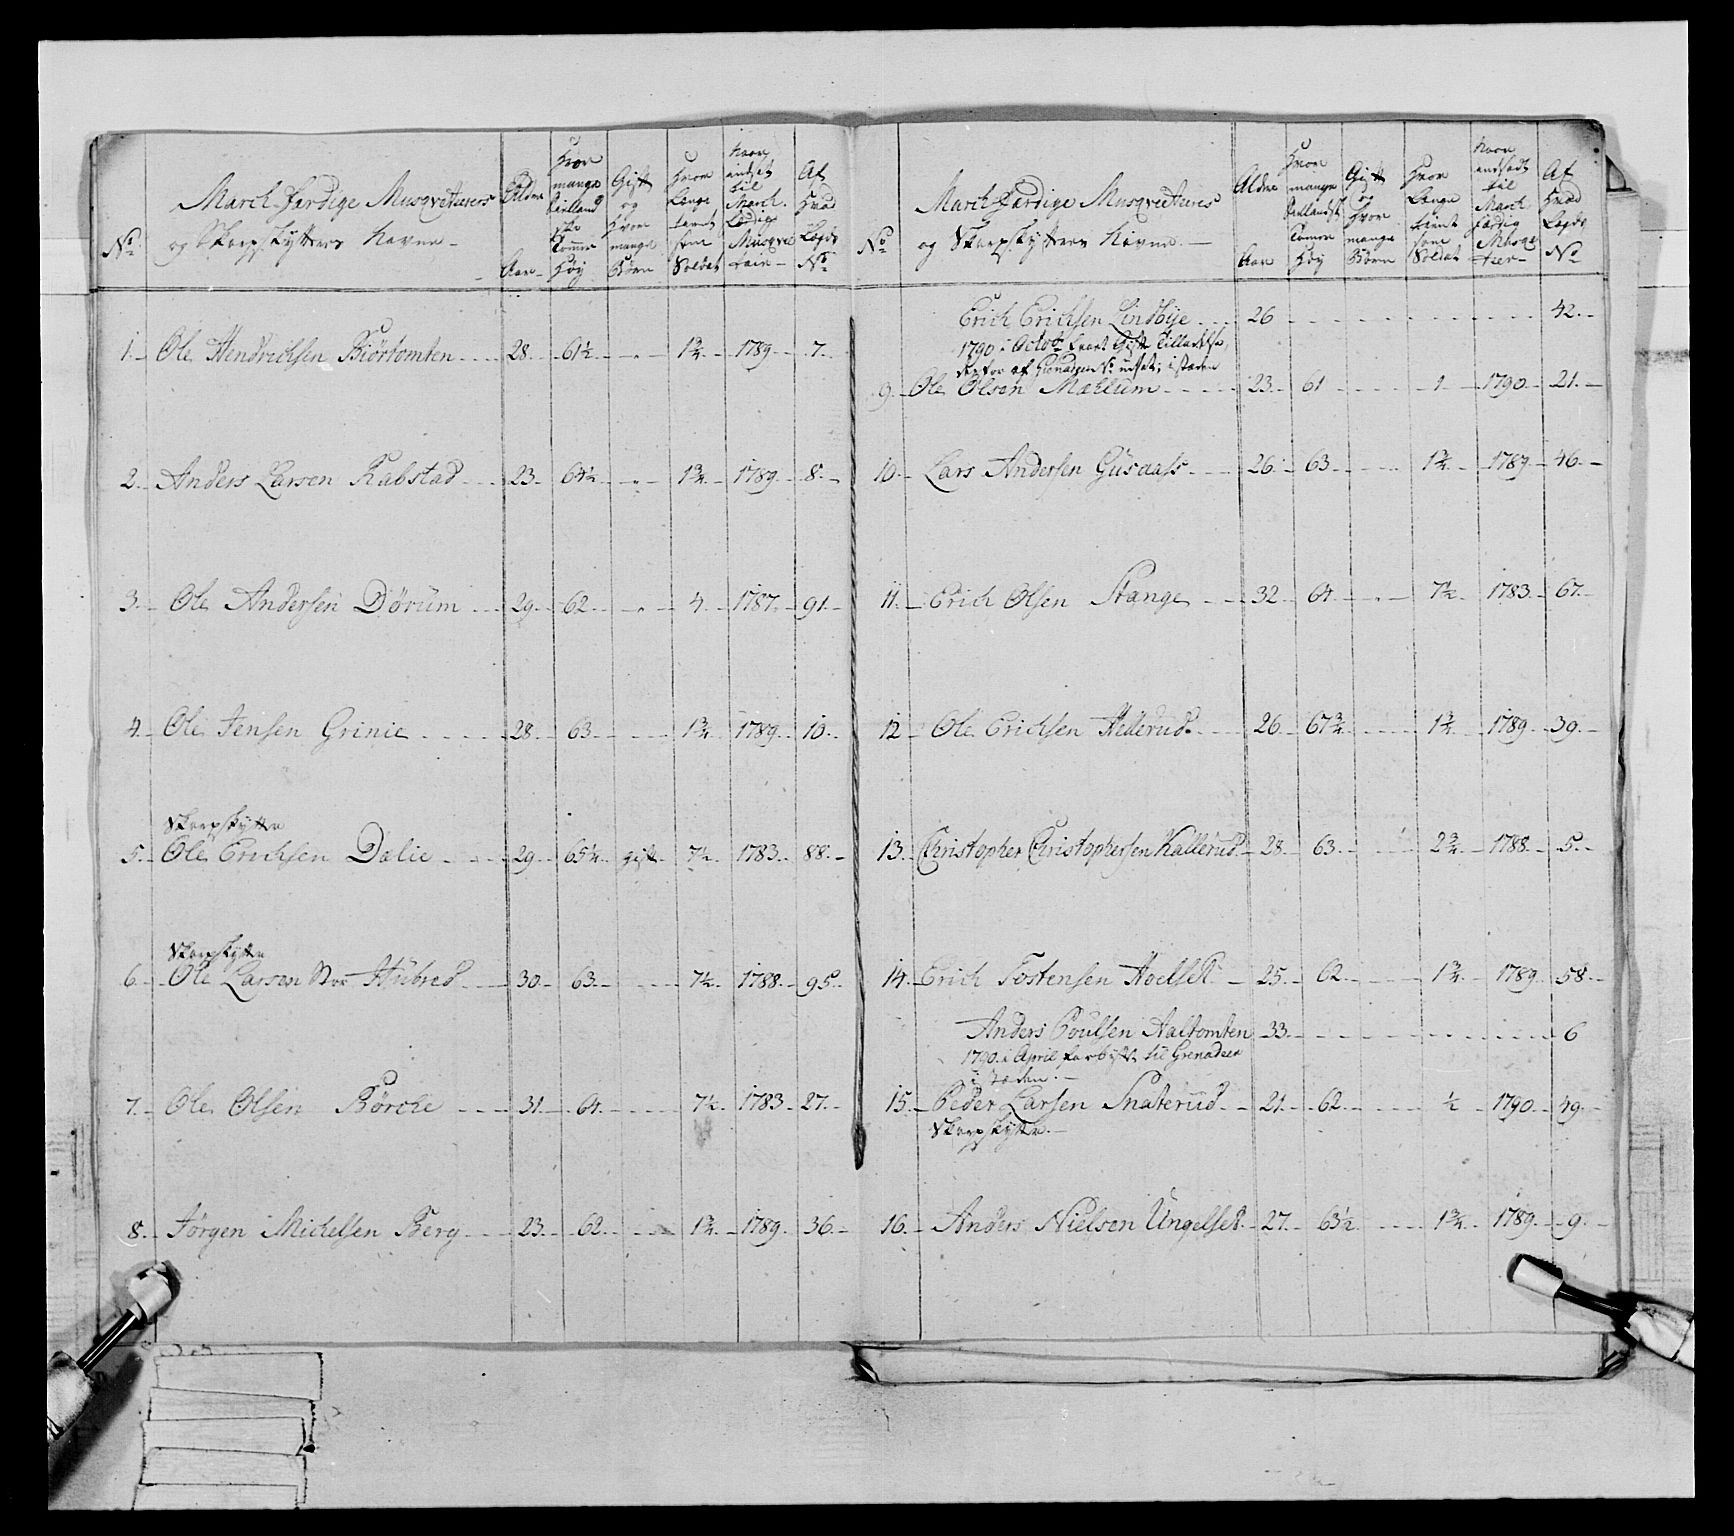 No.
March-færdige Musqveteurers
og Skarpskytters Navne
Alder
Aar
Hvor mange Siællandske Tomme Høy
Gift og Hvor mange Børn
Hvor Længe tient som Soldat
Naar indsat til March-færdig Musqveteur
Af Hvad Lægds No.
1. Ole Hendrichsen Biörtomten 28. 61½ 1¾ 1789. 7.
2. Anders Larsen Rabstad 23. 64½ 1¾ 1789. 8.
3. Ole Andersen Dörüm 29. 62 4. 1787. 91.
4. Ole Jensen Grinie 28. 63. 1¾ 1789. 10.
Skarpskytte
5. Ole Erichsen Dalie 29. 65¼ gift 7½ 1783. 88.
Skarpskytte
6. Ole Larsen Hübred 30. 63. 7½ 1788. 95.
7. Ole Olsen Börche 31. 64. 7½ 1783. 27.
8. Jörgen Michelsen Berg 23. 62. 1¾ 1789. 36.
No.
March-færdige Musqveteurers
og Skarpskytters Navne.
Alder
Aar
Hvor mange Siællandsk Tomme Høy
Gift og Hvor mange Børn
Hvor Længe tient som Soldat
Naar indsadt til March færdig Musqveteer
Af Hvad Lægds No.
Erich Erichsen Lindbye 26 42.
1790 i Octobr. Gift
i steden
9. Ole Olsen Mæhlum 23. 61 1. 1790. 21.
10. Lars Andersen Güsaass 26. 63 1¾ 1789. 46.
11. Erich Olsen Stange 32. 64 7½ 1783. 67.
12 Ole Erichsen Hellerud 26. 67¾ 1¾ 1789. 39.
13. Christopher Christophersen Kallerud 28. 63. 2¾ 1788. 5.
14. Erich Tostensen Hoelset 25. 62. 1¾ 1789. 58.
Anders Poulsen Aaltomten 33. 6
1790 i April forbytt til Grenadeer
i steden.
15. Peder Larsen Snaterud 21. 62 ½ 1790. 49.
Skarpskytte.
16. Anders Nielsen Ungelset 27. 63½ 1¾ 1789. 9.